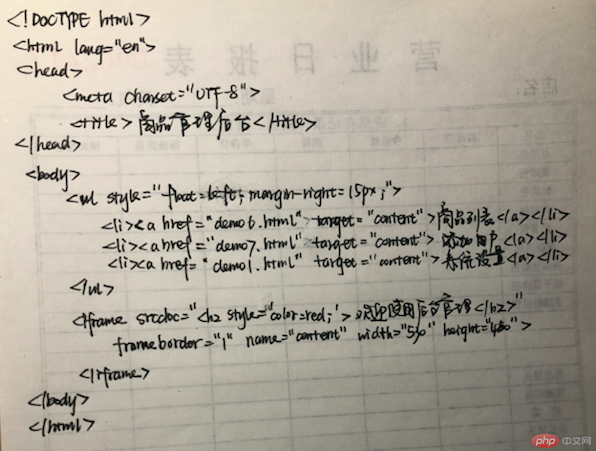 <!DOCTYPE html>
<html lang="en">
<head>
<meta charset="UTF-8">
<title>商品管理后台</title>
</head>
<body>
<ul style="float=left; margin-right=15px;">
<li><a href="demo6.html" target="content">商品列表</a></li>
<li><a href="demo7.html" target="content">添加用户</a></li>
<li><a href="demo1.html" target="content">系统设置</a></li>
</ul>
<iframe srcdoc="<h2 style='color=red;'>欢迎使用后台管理</h2>"
frameborder="1" name="content" width="530" height="450">
</iframe>
</body>
</html>
营业日报表
店名:
php 中文网